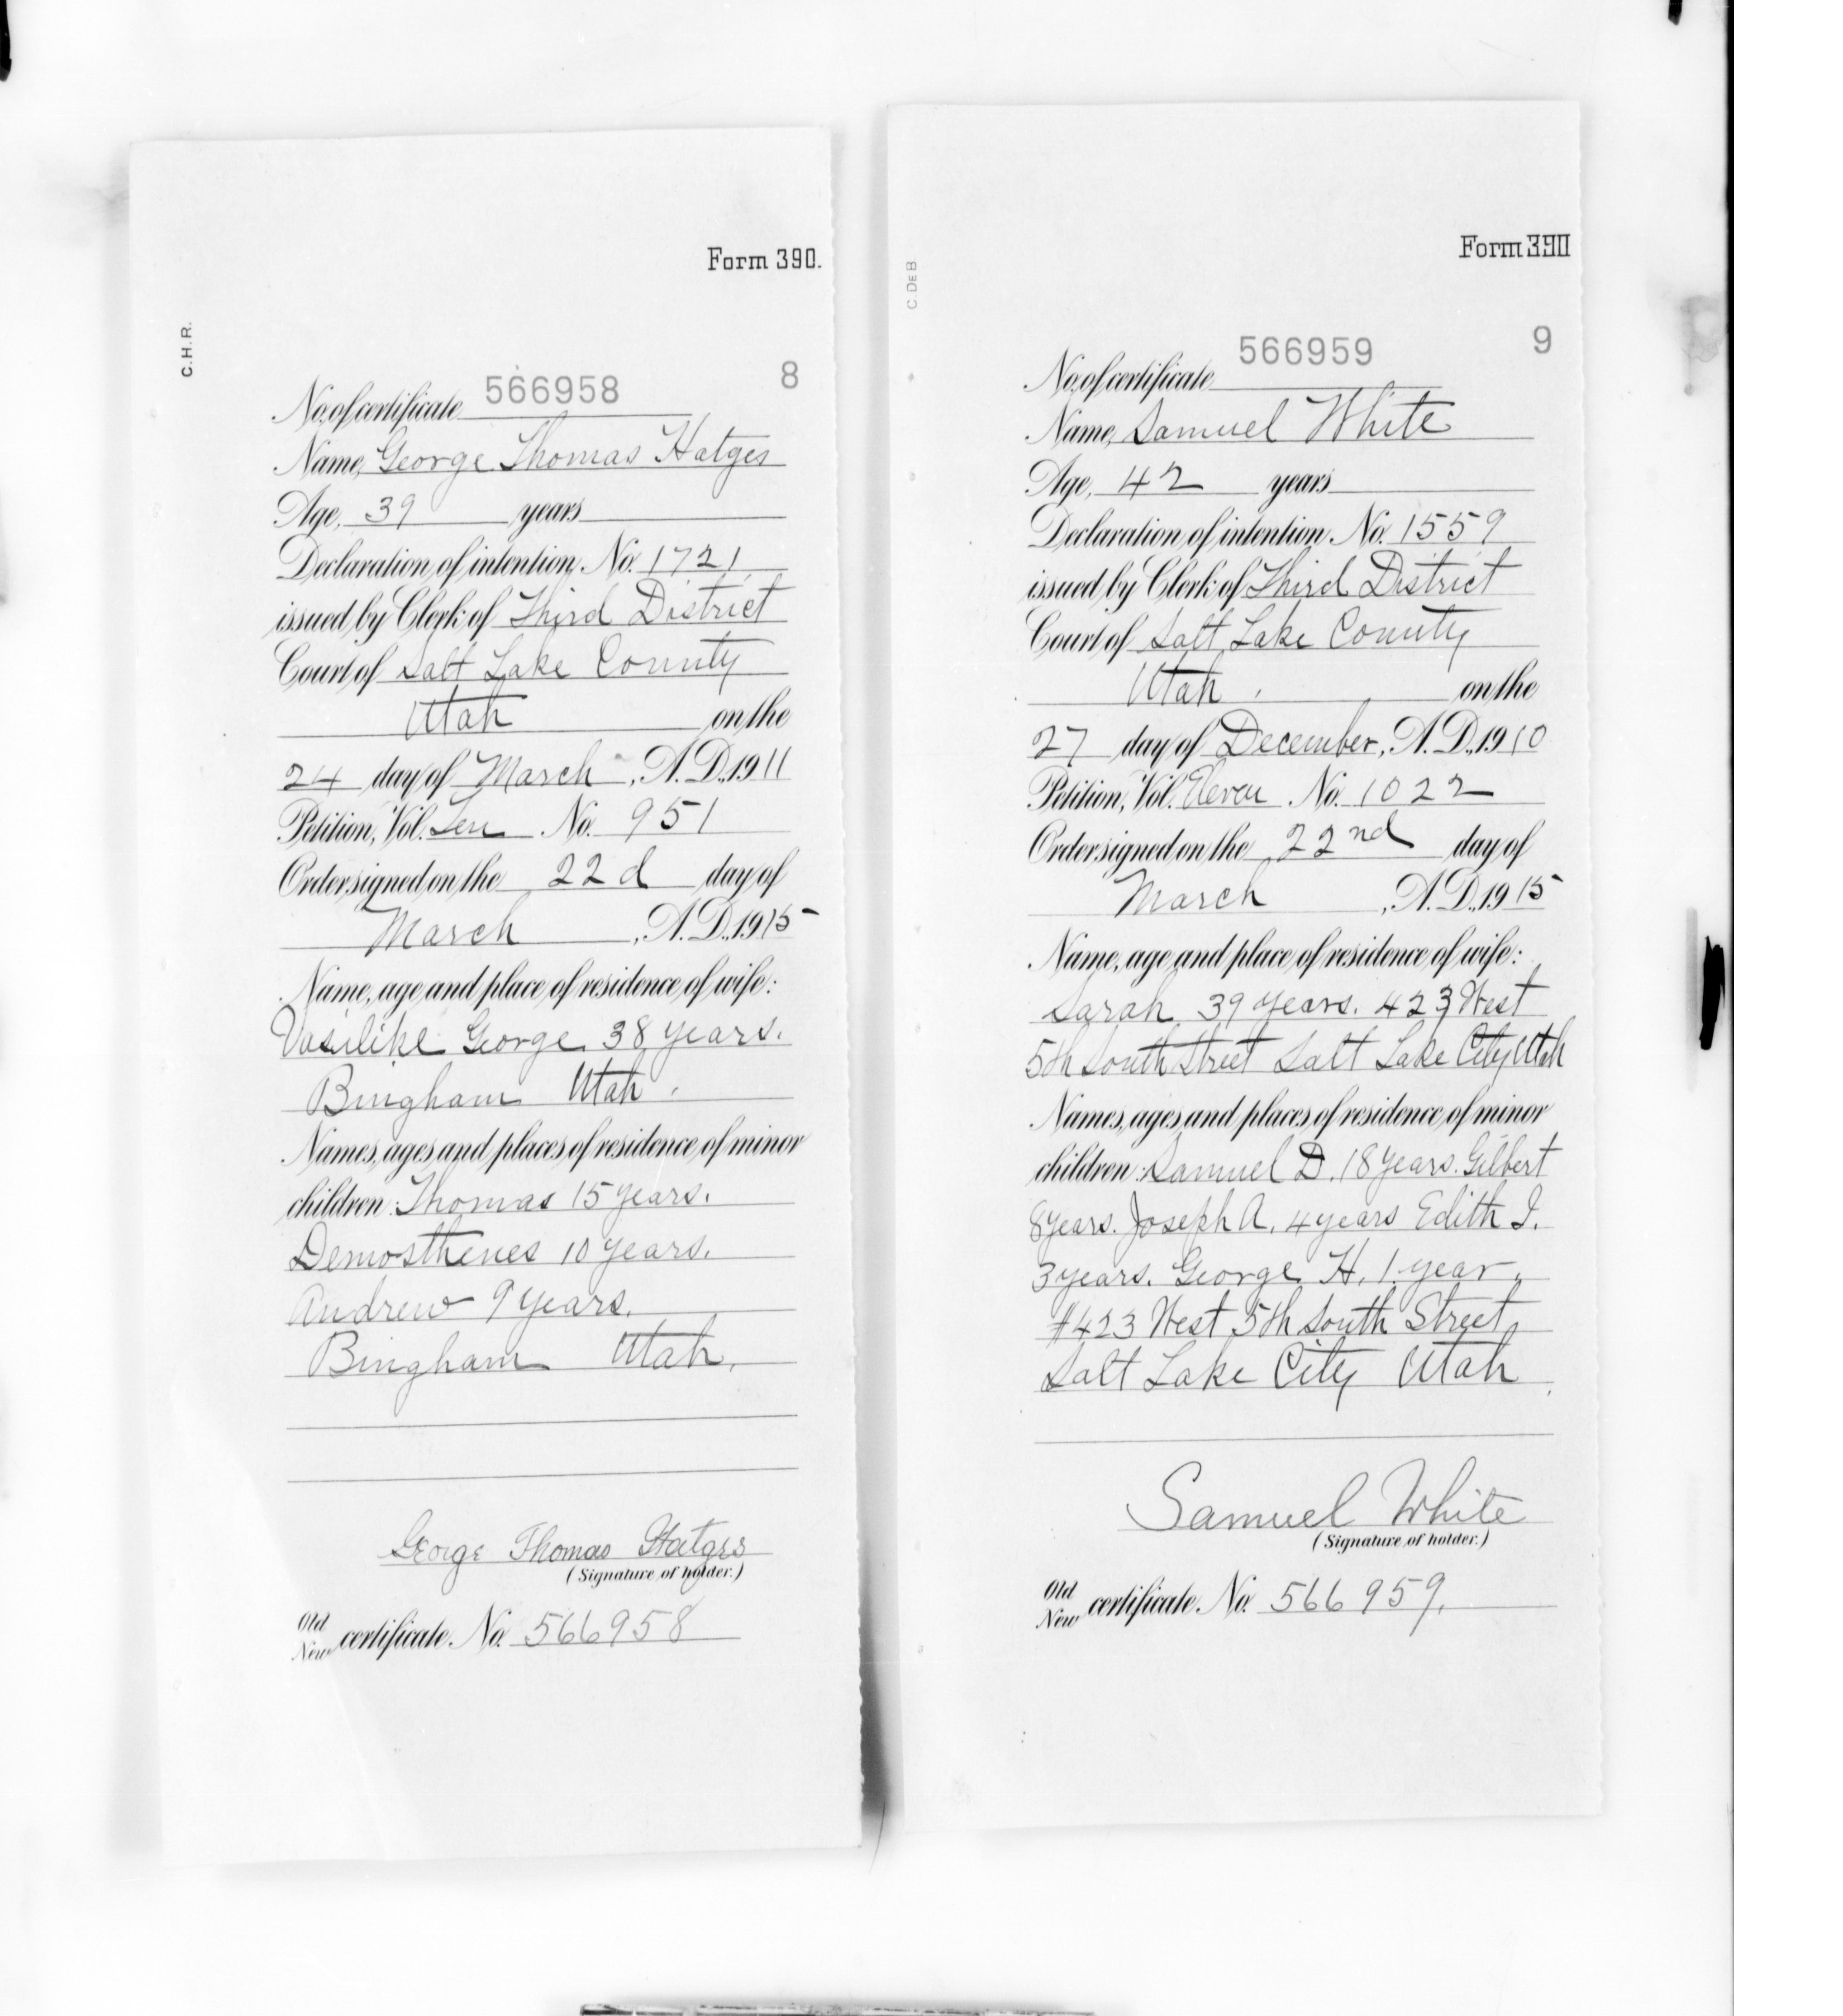 Form 390.
C.H.R.
8
No. of certificate 566958
Name, George Thomas Hatges
Age, 39 years
Declaration of intention, No. 1721
issued by Clerk of Third District
Court of Salt Lake County
Utah on the
24 day of March, A.D., 1911
Petition, Vol. Ten No. 951
Order signed on the 22d day of
March, A.D., 1915
Name, age and place of residence of wife:
Vasilike George 38 years.
Bingham Utah.
Names, ages and places of residence of minor
children: Thomas 15 years.
Demosthenes 10 years.
Andrew 9 years.
Bingham Utah.
George Thomas Hatges
(Signature of holder.)
Old
New certificate No. 566958
Form 390
C DEB
9
No. of certificate 566959
Name, Samuel White
Age, 42 years
Declaration of intention, No. 1559
issued by Clerk of Third District
Court of Salt Lake County
Utah. on the
27 day of December, A.D., 1910
Petition, Vol. Eleven No. 1022
Order signed on the 22nd day of
March, A.D., 1915
Name, age and place of residence of wife:
Sarah 39 years. 423 West
5th South Street Salt Lake City Utah
Names, ages and places of residence of minor
children: Samuel D. 18 years. Gilbert
8 years. Joseph A. 4 years Edith I.
3 years. George H. 1 year.
#423 West 5th South Street
Salt Lake City Utah.
Samuel White
(Signature of holder.)
Old
New certificate No. 566959.